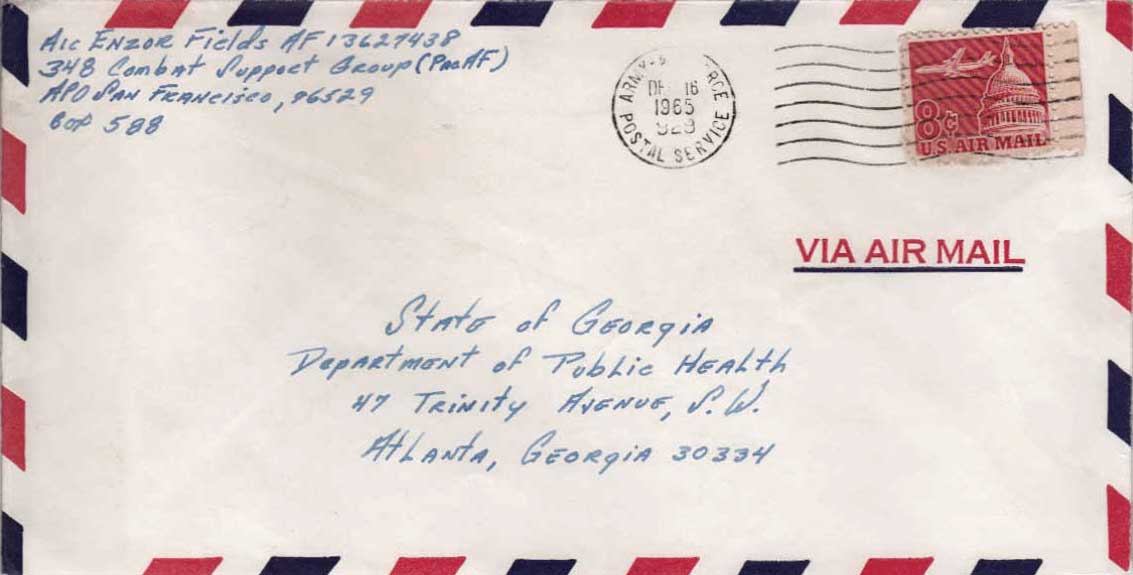 A1c Enzor Fields AF 13627438
348 Combat Support Group (PacAF)
APO San Francisco, 96529
Box 588
ARMY RCE
16
1965
POSTAL SERVICE
8¢
U.S. AIR MAIL
VIA AIR MAIL
State of Georgia
Department of Public Health
47 Trinity Avenue, S.W.
Atlanta, Georgia 30334